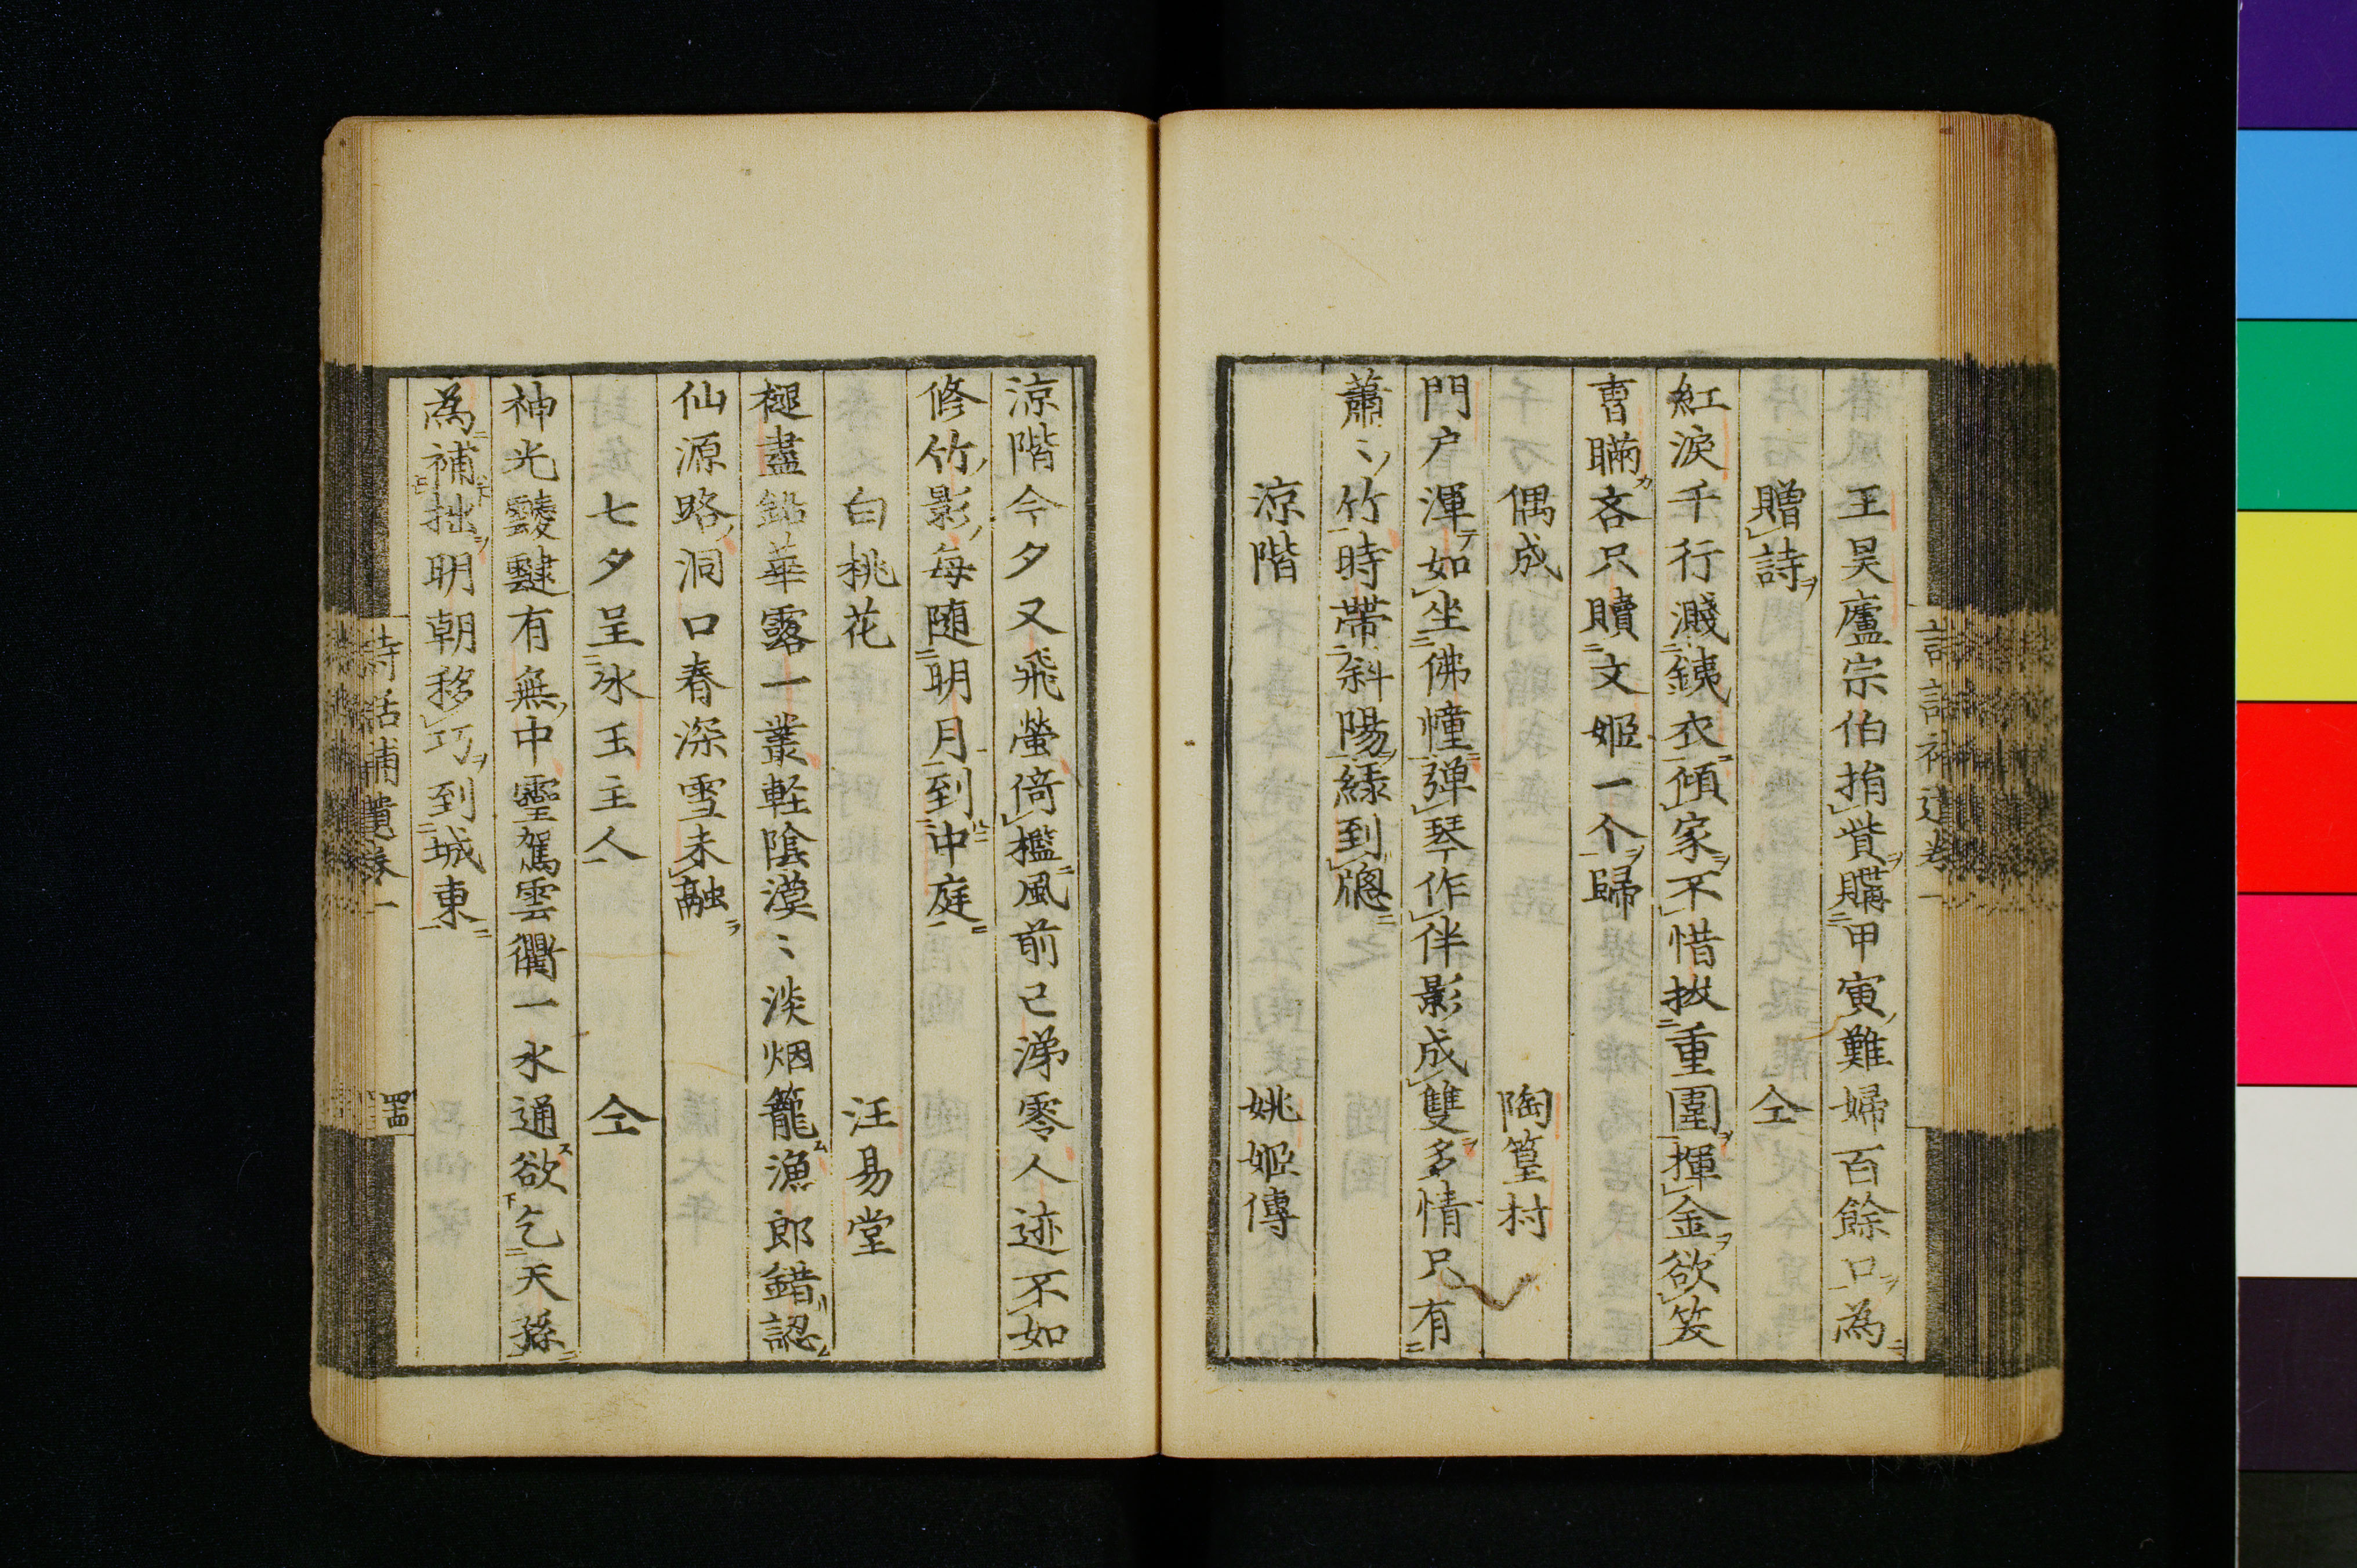 王昊廬宗伯捐貲購甲寅難婦百餘口為
贈詩 仝
紅淚千行濺銕衣傾家不惜拔重圍揮金欲笑
曹瞞吝只贖文姬一个歸
偶成 陶篁村
門户渾如坐佛幢彈琴作伴影成雙多情只有
蕭〻竹時帶斜陽綠到窓
涼階 姚姬傳
涼階今夕又飛螢倚檻風前已涕零人迹不如
修竹影每随明月到中庭
白桃花 汪易堂
褪盡鉛華露一叢軽陰漠〻淡烟籠漁郎錯認
仙源路洞口春深雪未融
七夕呈氷玉主人 仝
神光靉靆有無中靈駕雲衢一水通欲乞天孫
為補拙明朝移巧到城東
詩話補遺卷一